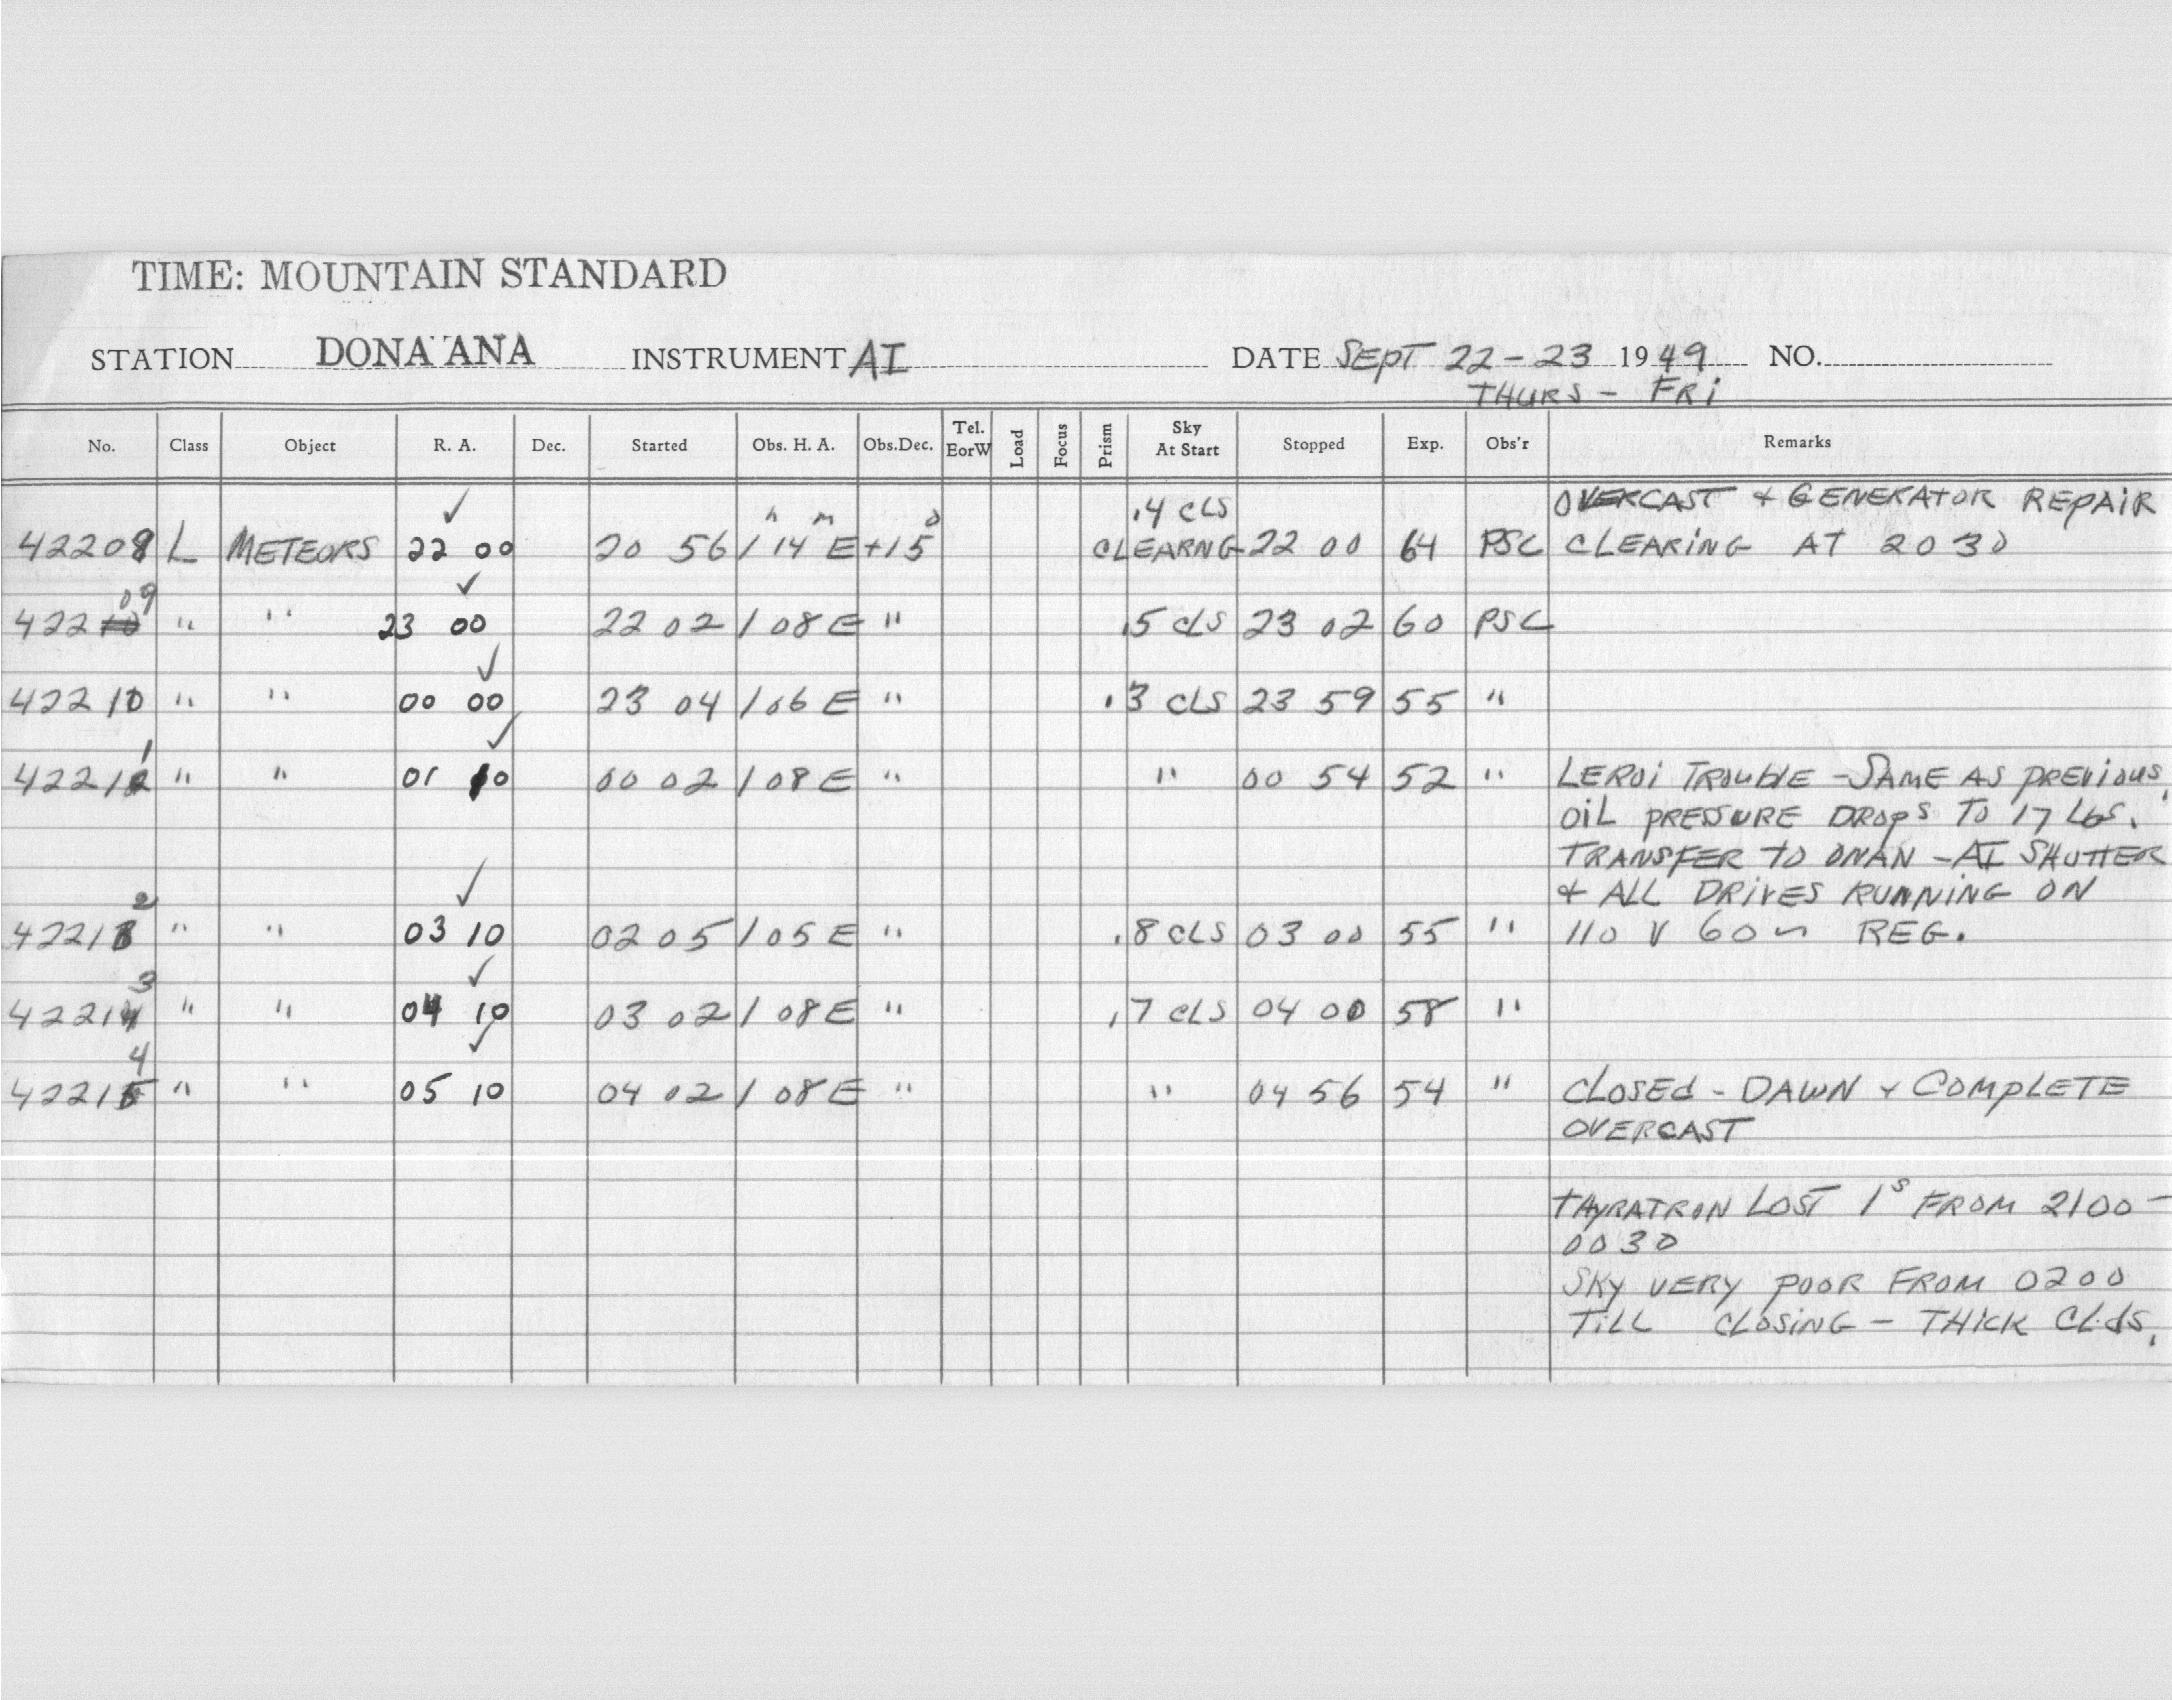 TIME: MOUNTAIN STANDARD
STATION DONA ANA INSTRUMENT AI DATE SEPT 22-23 1949 NO.
THURS - FRI
No. Class Object R. A. Dec. Started Obs. H. A. Obs.Dec. Tel. EorW Load Focus Prism Sky At Start Stopped Exp. Obs'r Remarks
.4 CLS OVERCAST + GENERATOR REPAIR
42208 L METEORS 22 00 20 56 1 h 14 m E +15 o CLEARNG 22 00 64 PSC CLEARING AT 2030
42209 " " 23 00 22 02 1 08 E " .5 CLS 23 02 60 PSC
42210 " " 00 00 23 04 1 06 E " .3 CLS 23 59 55 "
42211 " " 01 10 00 02 1 08 E " " 00 54 52 " LEROI TROUBLE - SAME AS PREVIOUS,
OIL PRESSURE DROPS TO 17 LBS.
TRANSFER TO ONAN - AI SHUTTER
+ ALL DRIVES RUNNING ON
42212 " " 03 10 02 05 1 05 E " .8 CLS 03 00 55 " 110 V 60 ~ REG.
42213 " " 04 10 03 02 1 08 E " .7 CLS 04 00 58 "
42214 " " 05 10 04 02 1 08 E " " 04 56 54 " CLOSEd - DAWN + COMPLETE
OVERCAST
THYRATRON LOST 1s FROM 2100 -
0030
SKY VERY POOR FROM 0200
TILL CLOSING - THICK CLdS.